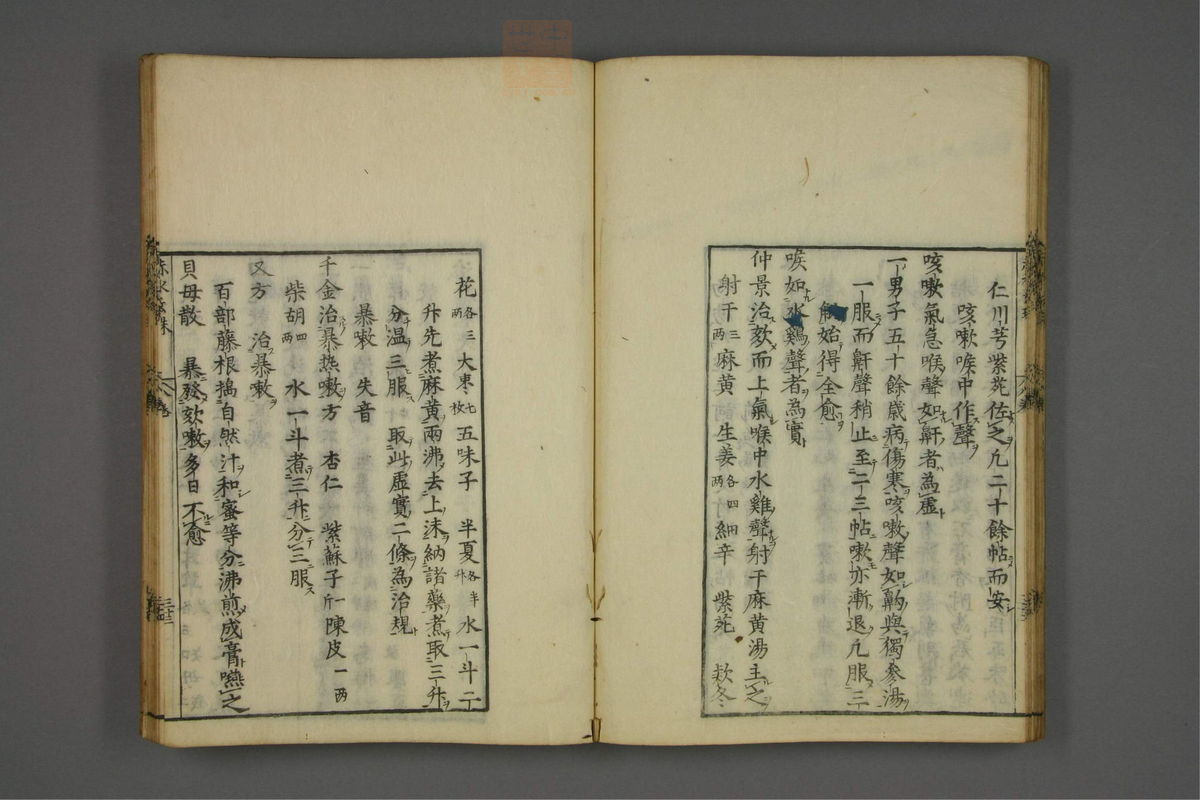 仁川芎紫菀佐之凢二十餘帖而安
咳嗽喉中作聲
咳嗽氣急喉聲如鼾者為虛
一男子五十餘歲病傷寒咳嗽聲如齁與獨參湯
一服而鼾聲稍止至二三帖嗽亦漸退凢服二三
始得全愈
喉如水鷄聲者為實
仲景治欬而上氣喉中水雞聲射干麻黄湯主之
射干三兩麻黄 生姜各四兩細辛 紫菀 欵冬
花各三兩大枣七枚五味子 半夏各半升水一斗二
升先煮麻黄兩沸去上沫納諸藥煮取三升
分温三服 取此虛實二條為治規
暴嗽 失音
千金治暴热嗽方 杏仁 紫蘇子一斤陳皮一兩
柴胡四兩 水一斗煮三升分三服
又方 治暴嗽
百部藤根搗自然汁和蜜等分沸煎成膏嚥之
貝母散 暴發欬嗽多日不愈